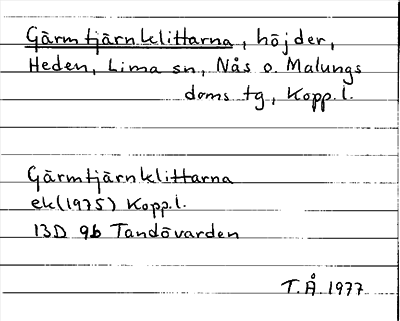 Gärmtjärnklittarna, höjder,
Heden, Lima sn, Nås o. Malungs
doms tg, Kopp.l.
Gärmtjärnklittarna
ek(1975) Kopp.l.
13D 9b Tandövarden
T.Å. 1977